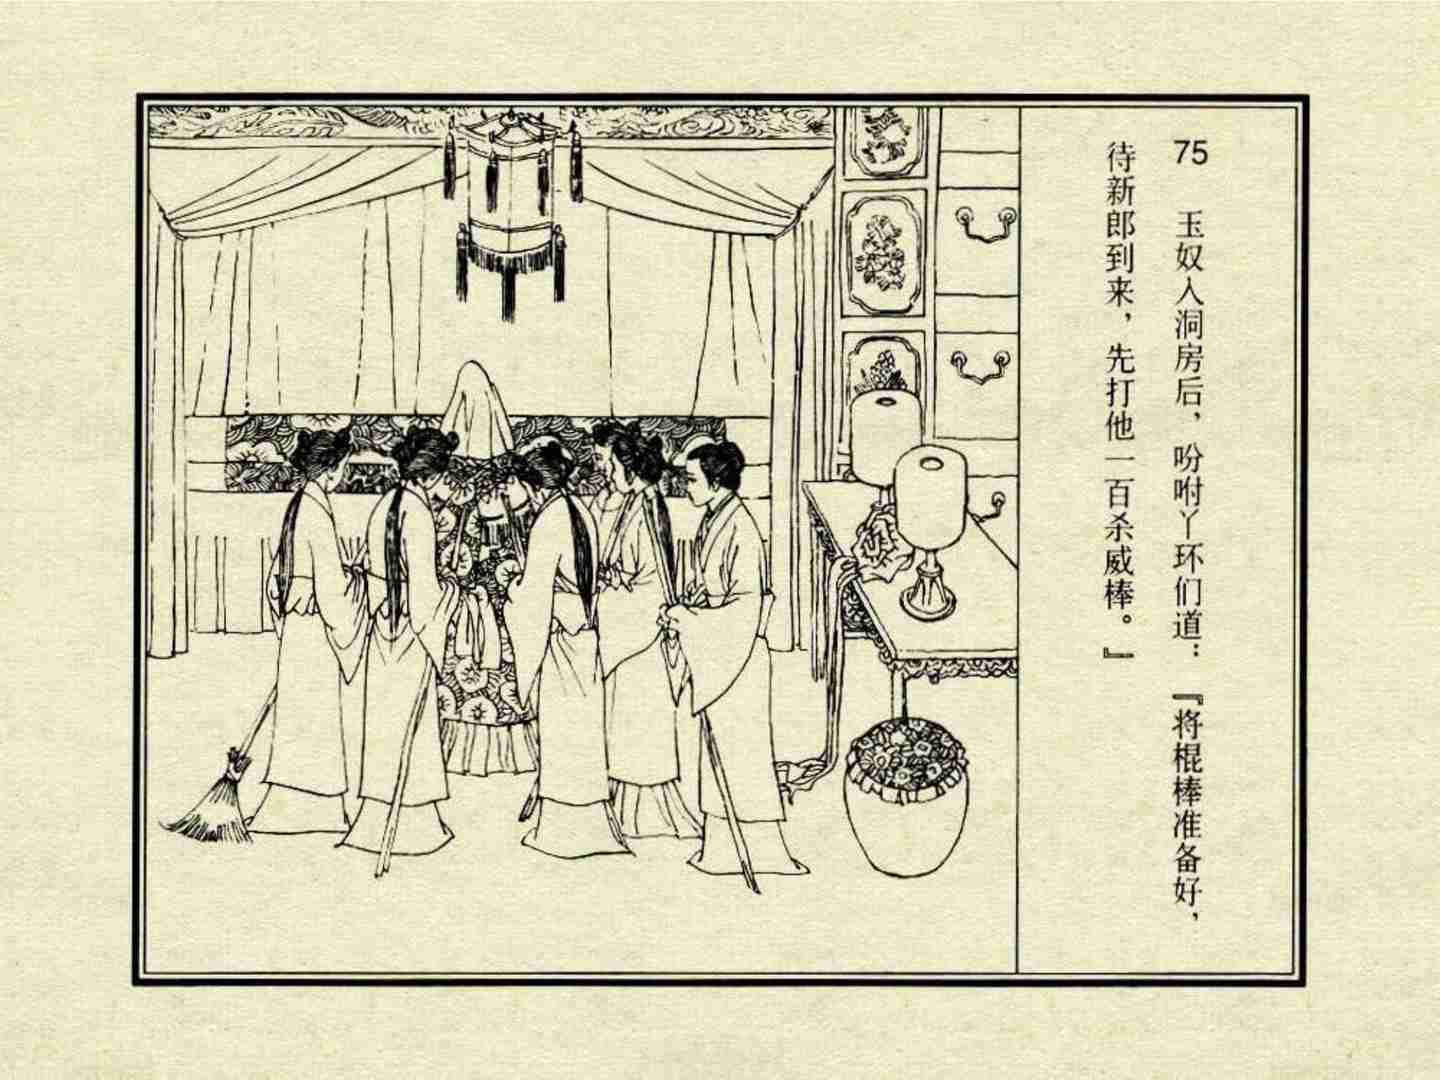 75 玉奴入洞房后，吩咐丫环们道：『将棍棒准备好，
待新郎到来，先打他一百杀威棒。』